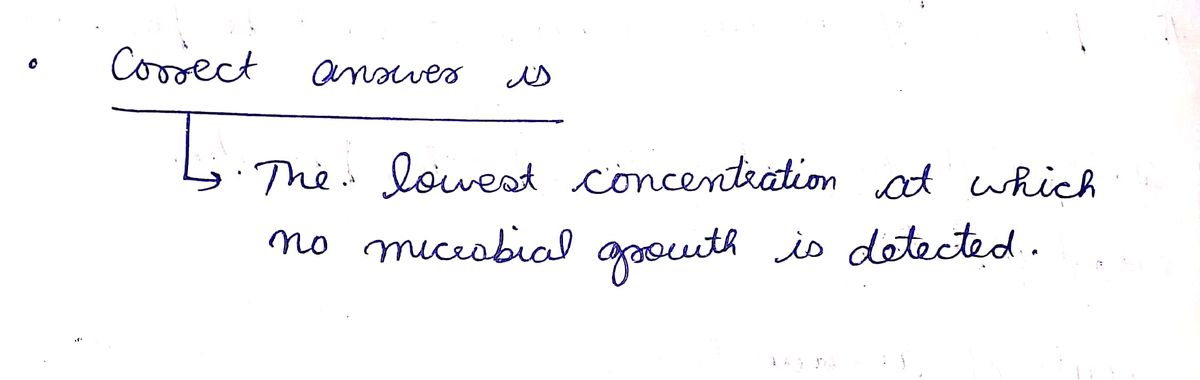 Correct answer is
The lowest concentration at which
no microbial growth is detected.